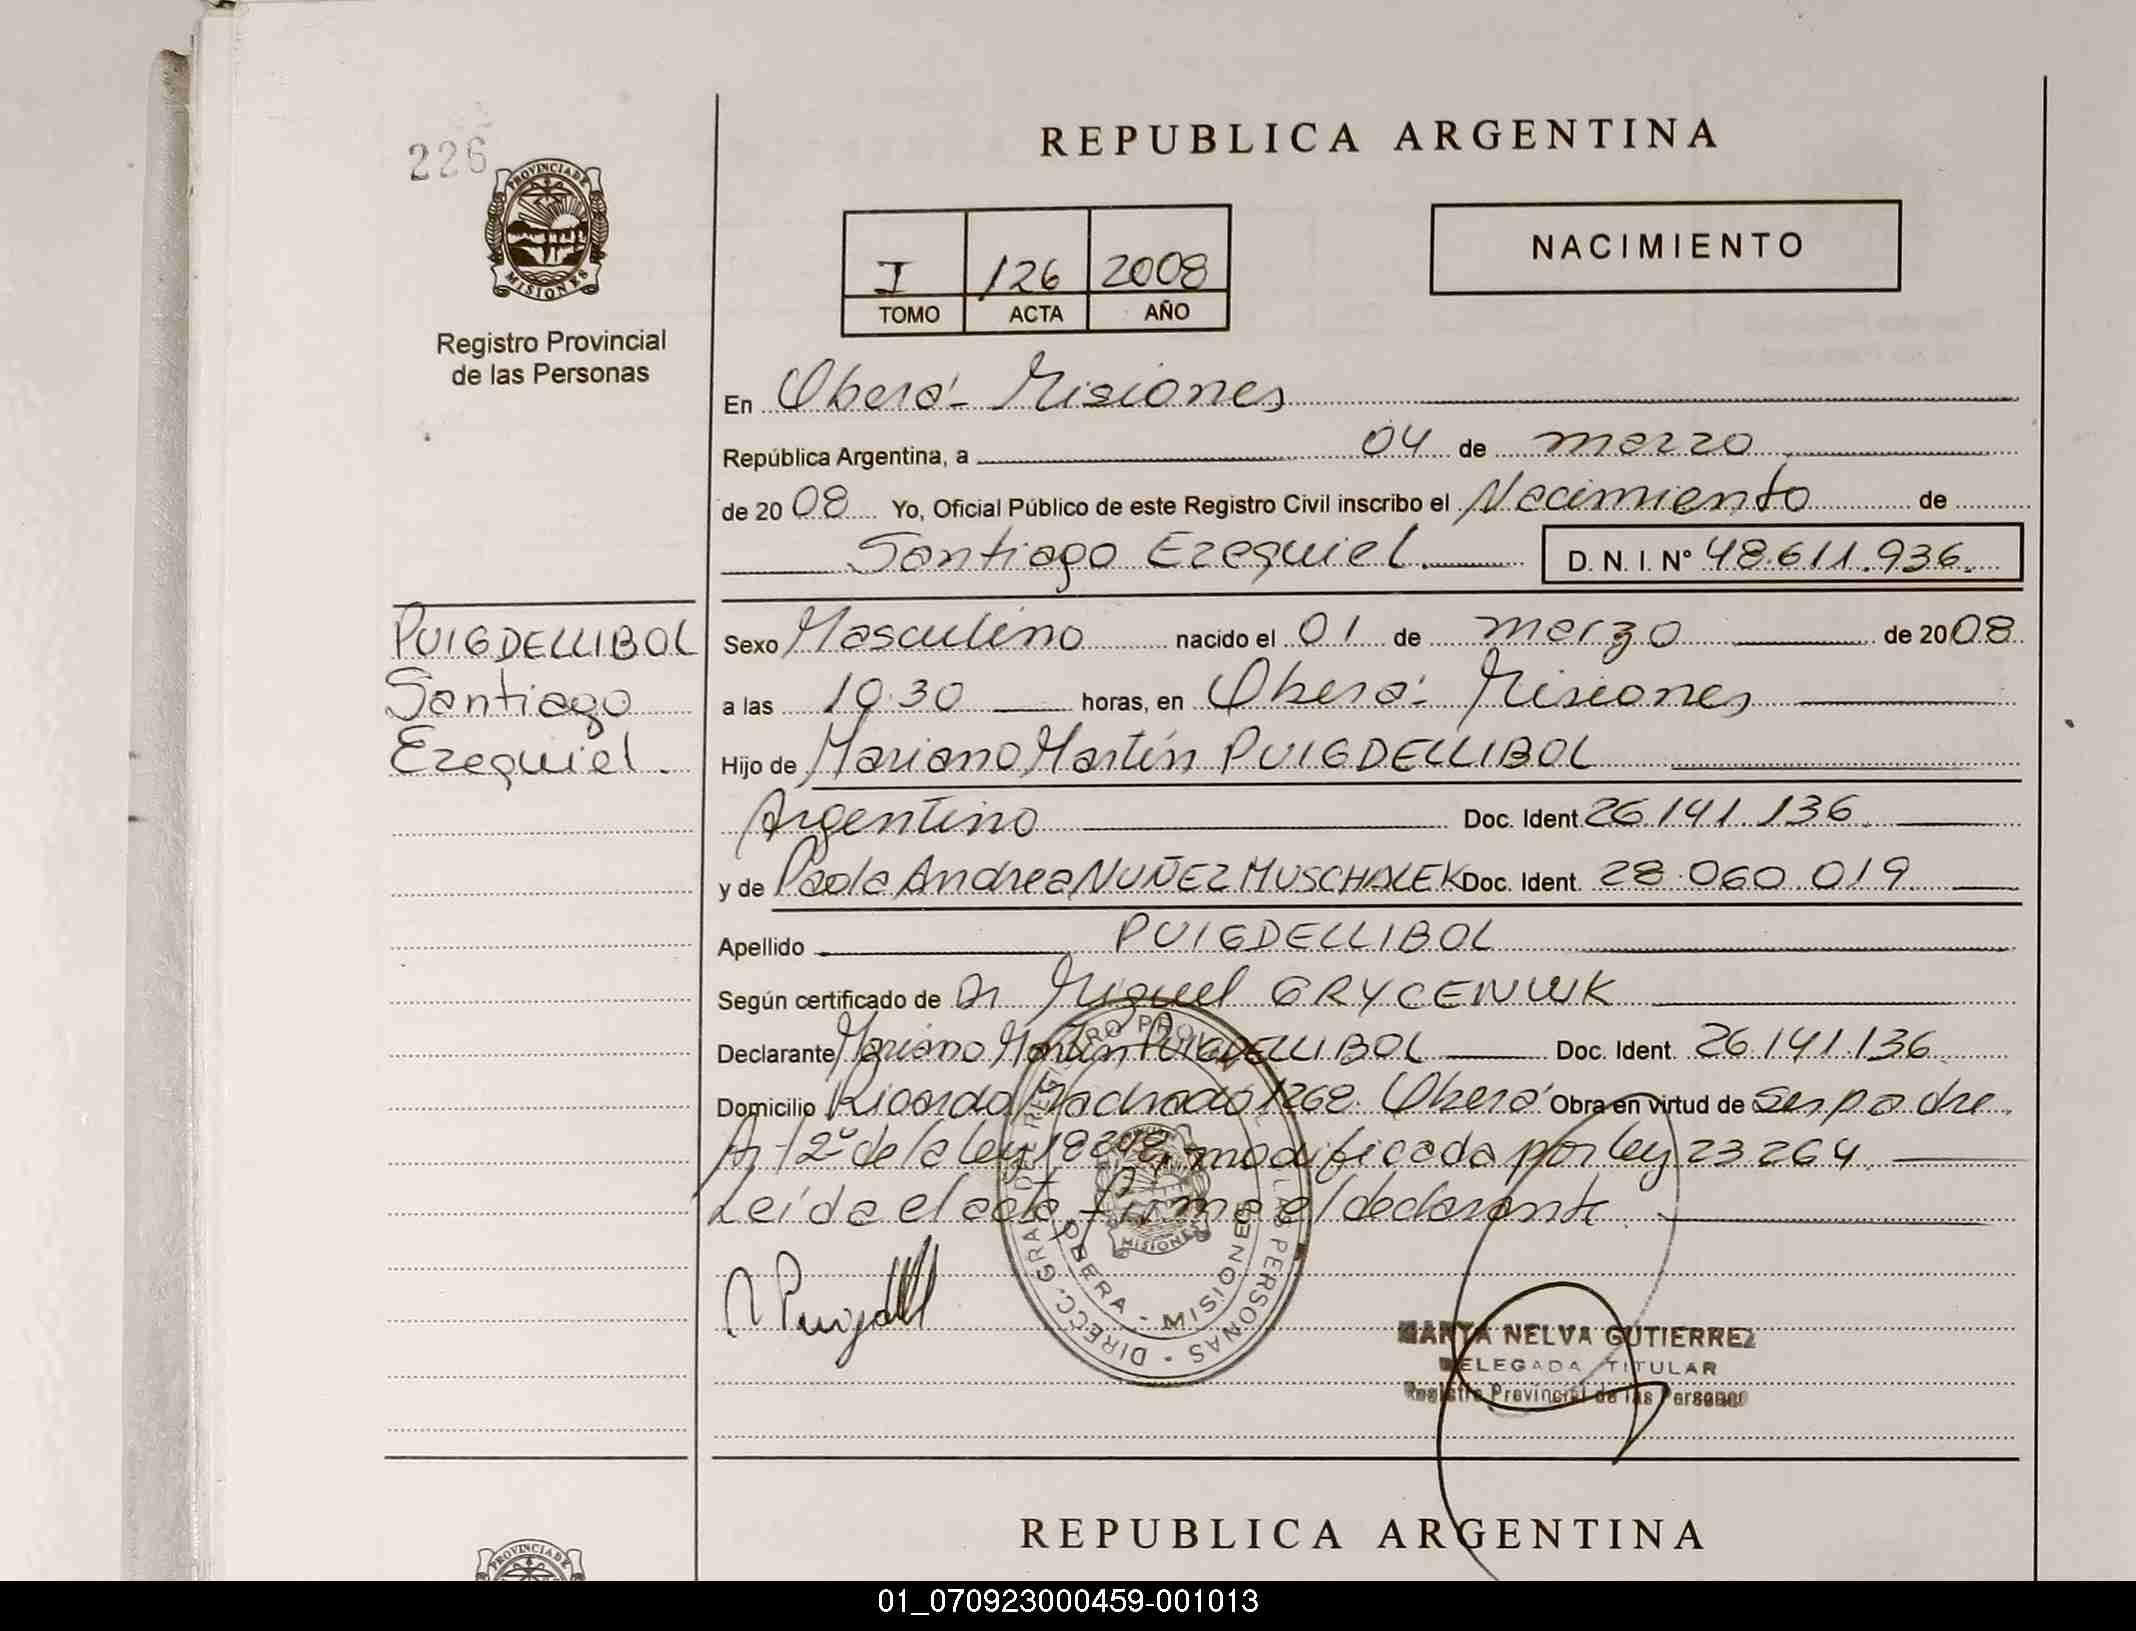 226
PROVINCIA DE
MISIONES
Registro Provincial
de las Personas
REPUBLICA ARGENTINA
I 126 2008
TOMO ACTA AÑO
NACIMIENTO
En Oberá - Misiones
República Argentina, a 04 de marzo
de 2008 Yo, Oficial Público de este Registro Civil inscribo el Nacimiento de
Santiago Ezequiel. D. N. I. N° 48.611.936.
PUIGDELLIBOL
Santiago
Ezequiel.
Sexo Masculino nacido el 01 de marzo de 2008
a las 10.30 horas, en Oberá - Misiones
Hijo de Mariano Martín PUIGDELLIBOL
Argentino Doc. Ident. 26.141.136
y de Paola Andrea NUÑEZ MUSCHALEK Doc. Ident. 28.060.019
Apellido PUIGDELLIBOL
Según certificado de Dr Miguel
Declarante Mariano Martín PUIGDELLIBOL Doc. Ident. 26.141.136
Domicilio Ricardo Machado 1268. Oberá Obra en virtud de ser padre
Art 2º de la ley 18248, modificada por ley 23264.
Leída el acta firma el declarante
DIRECC. GRAL. DEL REGISTRO PROVIN. DE LAS PERSONAS
OBERA - MISIONES
MISIONES
MARTA NELVA GUTIERREZ
DELEGADA TITULAR
Registro Provincial de las Personas
REPUBLICA ARGENTINA
PROVINCIA DE
01_070923000459-001013